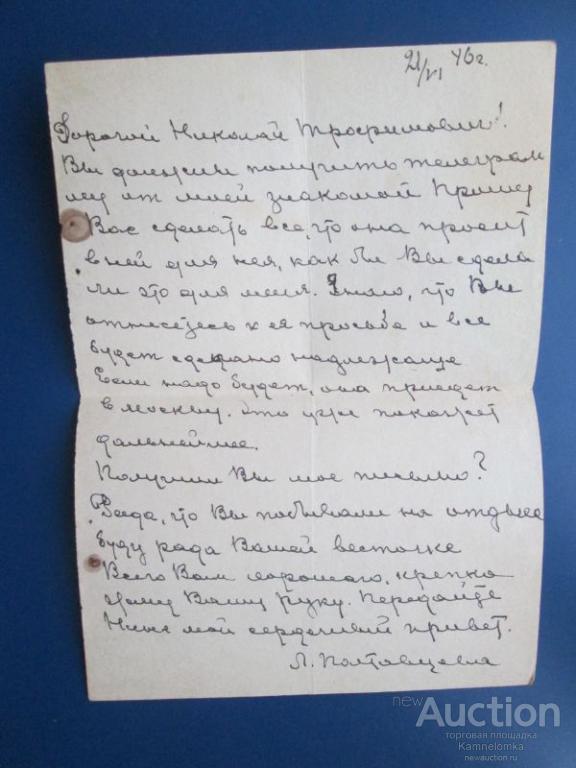 21/VI 46г.
Дорогой Николай Трофимович!
Вы должны получить телеграм
му от моей знакомой Прошу
Вас сделать все, что она просит
в ней для нея, как бы Вы сдела
ли это для меня. Знаю, что Вы
отнесетесь к ея просьбе и все
будет сделано надлежаще
Если надо будет, она приедет
в Москву. Это уже покажет
дальнейшее.
Получили Вы мое письмо?
Рада, что Вы побывали на отдыхе
Буду рада Вашей весточке
Всего Вам хорошего, крепко
жму Вашу руку. Передайте
Нине мой сердечный привет.
Л. Полтавцева
newAuction
торговая площадка
Kamnelomka
newauction.ru